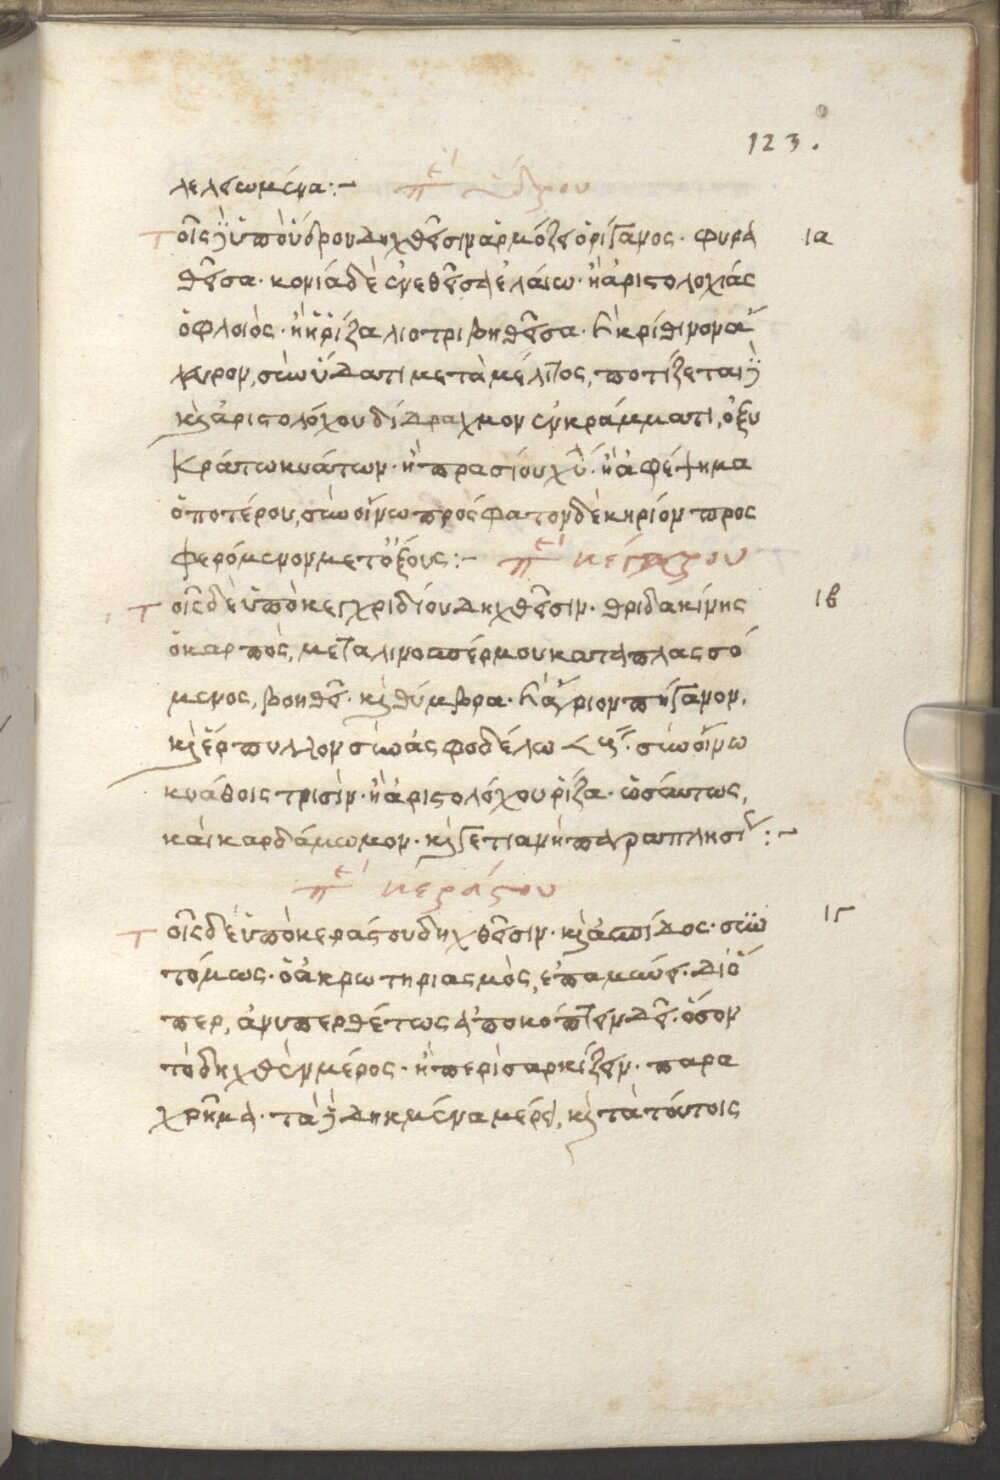 123.
λελεωμένα:~ περὶ ὕδρου
Τοῖς δὲ ὑπὸ ὕδρου δηχθεῖσιν ἁρμόζει ὀρίγανος· φυρα ια
θεῖσα· κονία δὲ ἐνεθεῖσα ἐλαίω· ἢ ἀριστολοχίας
ὁ φλοιὸς· ἢ ἡ ῥίζα λιοτριβηθεῖσα· ἢ κρίθινον ἄ
λευρον, σὺν ὕδατι μετὰ μέλιτος, ποτίζεται δὲ
καὶ ἀριστολόχου δίδραχμον ἐν κράμματι, ὀξυ
κράτω κυάτων· ἢ πρασίου χυ· ἢ ἀφέψημα
ὁποτέρου, σὺν οἴνω πρόσφατον δὲ κηρίον προς
φερόμενον μετ' ὄξους:~ περὶ κεγχρου
Τοῖς δὲ ὑπὸ κεγχριδίου δηχθεῖσιν· θριδακίνης ιβ
ὁ καρπὸς, μετὰ λινοσπέρμου καταπλασσό
μενος, βοηθεῖ· καὶ θύμβρα· ἢ ἄγριον πήγανον,
καὶ ἕρπυλλον σὺν ἀσφοδέλω σὺν οἴνω
κυάθοις τρισὶν· ἢ ἀριστολόχου ῥίζα· ὡσάυτως,
καὶ καρδάμωμον· καὶ γετιανὴ παραπλησί:~
περὶ κεράστου
Τοῖς δὲ ὑπὸ κεράστου δηχθεῖσιν· καὶ ἀσπίδος· συν ιγ
τόμως· ὁ ἀκρωτηριασμὸς, ἐπαμύνει· διό
περ, ἀνυπερθέτως ἀποκόπτειν δεῖ· ὅσον
τὸ δηχθὲν μέρος· ἢ περισαρκίζειν· παρα
χρῆμα· τὰ δὲ δηκμένα μέρη, καὶ τὰ τόυτοις